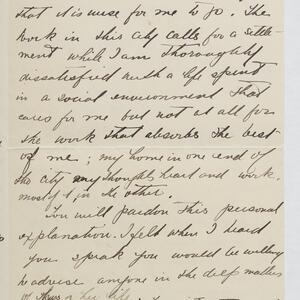 that it is wise for me to go. The
work in this city calls for a settle-
ment while I am thoroughly
dissatisfied with a life spent
in a social environment that
cares for me but not at all for
the work that absorbs the best
of me; my home in one end of
the city my thoughts heart and work
mostly in the other.
You will pardon this personal
explanation. I felt when I heard
you speak you would be willing
to advise anyone in the deep matters
of his or her life